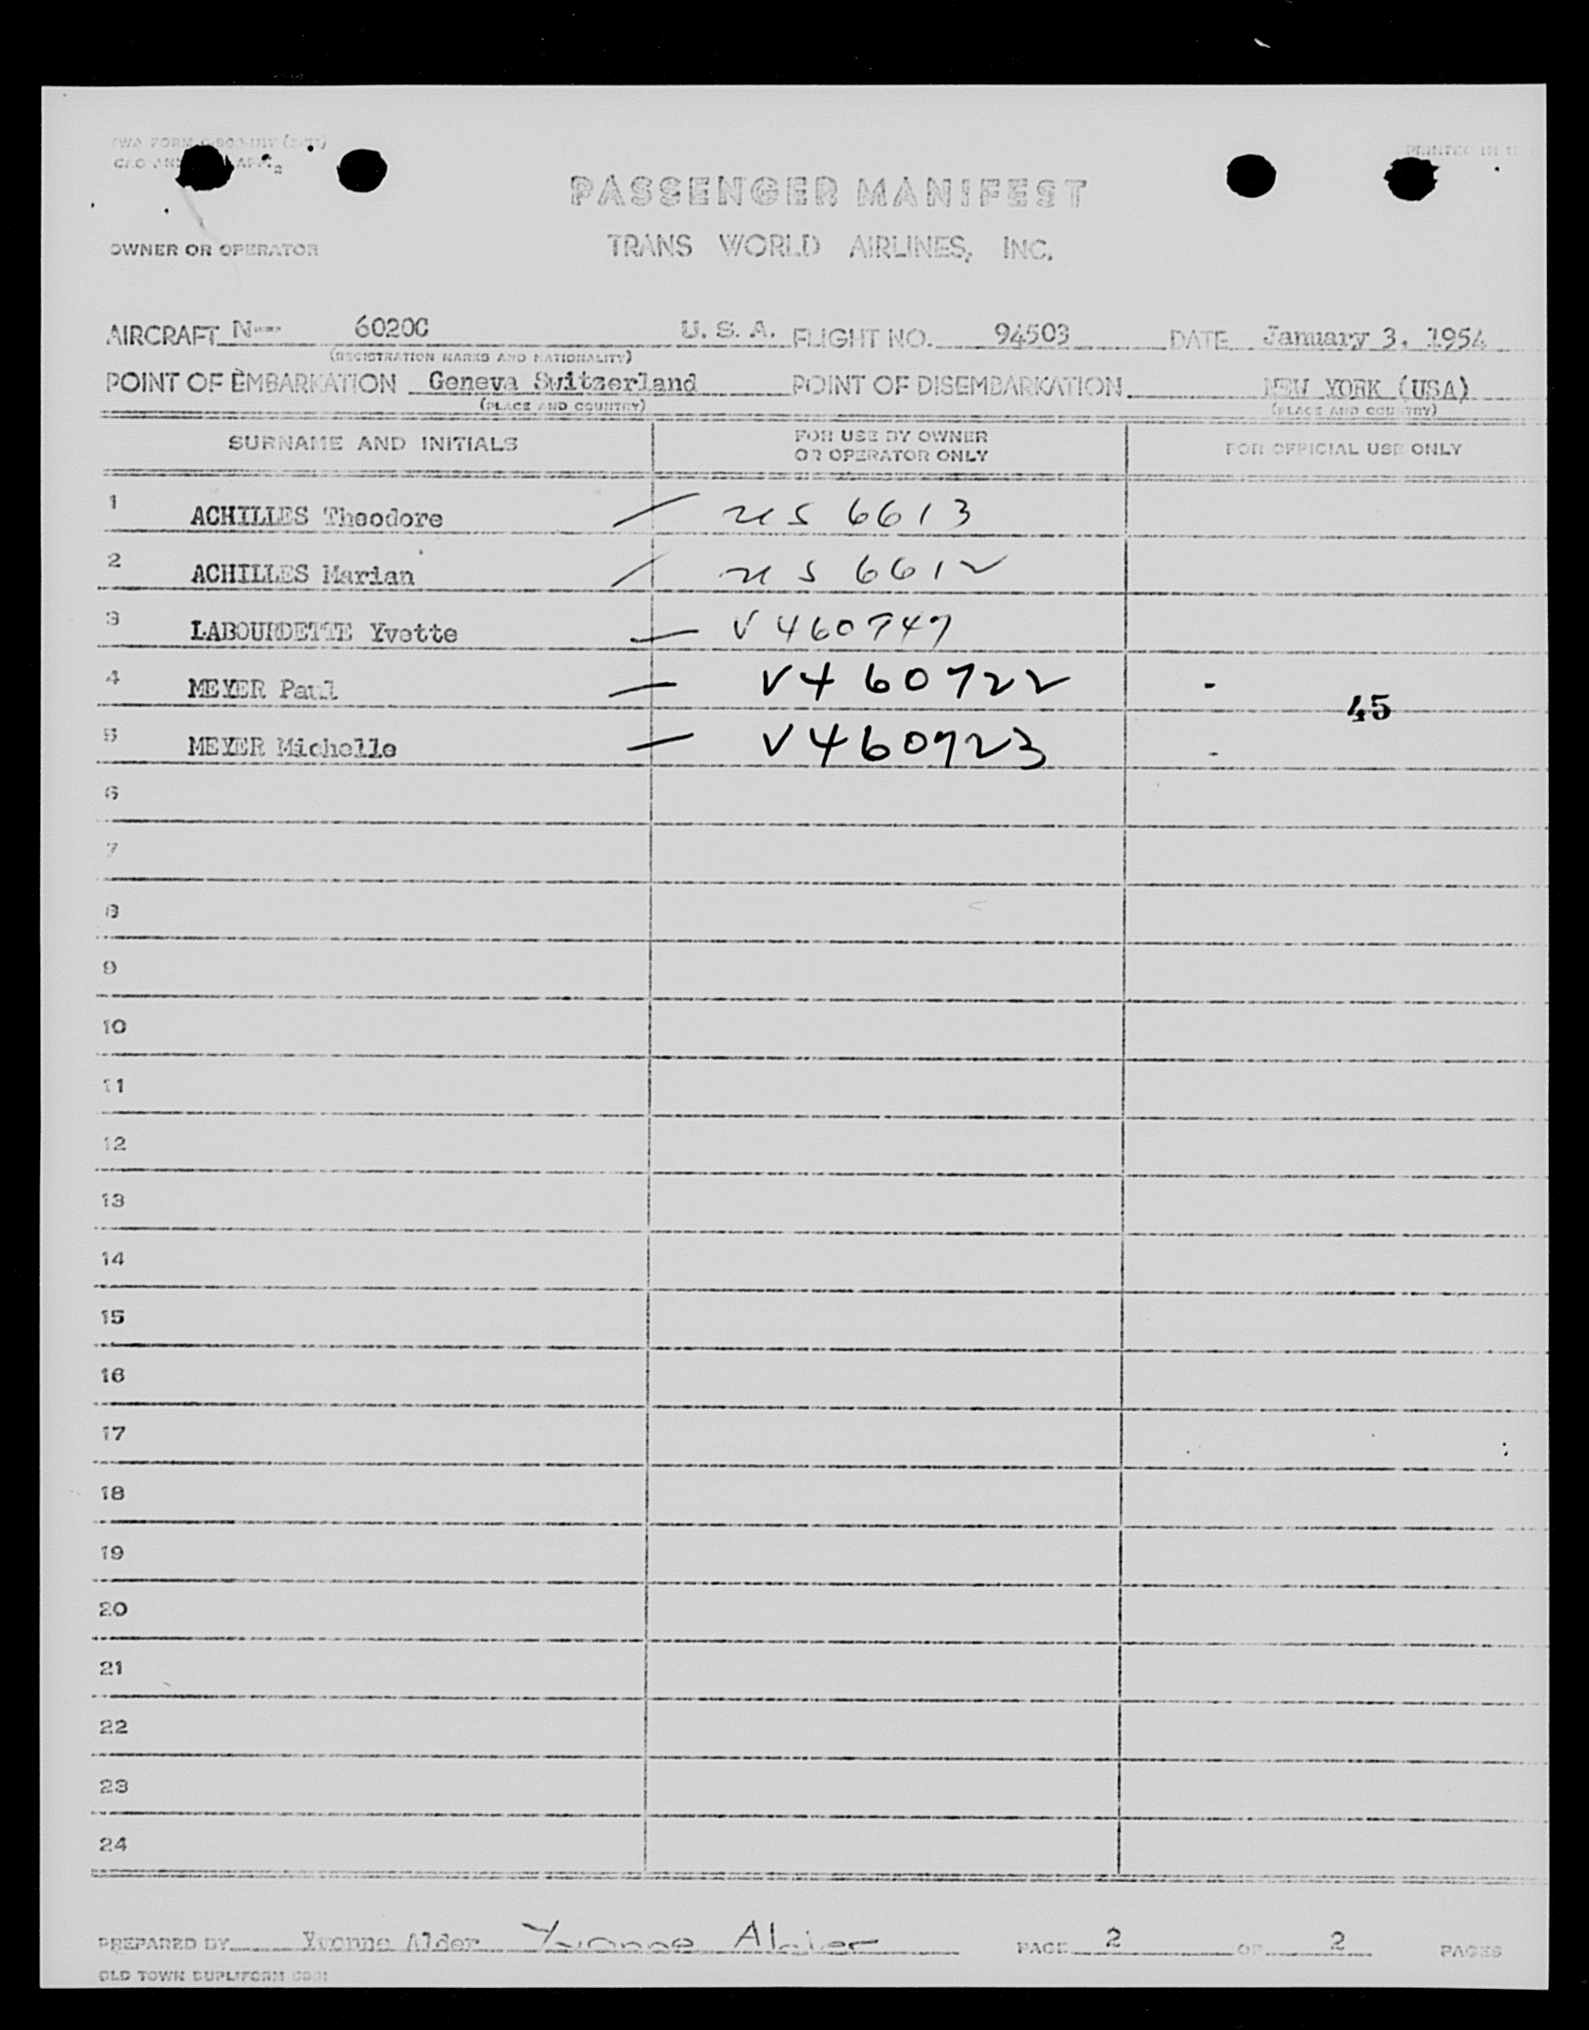 PASSENGER MANIFEST
OWNER OR OPERATOR TRANS WORLD AIRLINES, INC.
AIRCRAFT N--- 6020C U. S. A. FLIGHT NO. 94503 DATE January 3, 1954
(REGISTRATION MARKS AND NATIONALITY)
POINT OF EMBARKATION Geneva Switzerland POINT OF DISEMBARKATION NEW YORK (USA)
(PLACE AND COUNTRY) (PLACE AND COUNTRY)
SURNAME AND INITIALS FOR USE BY OWNER OR OPERATOR ONLY FOR OFFICIAL USE ONLY
1 ACHILLES Theodore / US 6613
2 ACHILLES Marian / US 6612
3 LABOURDETTE Yvette — V460747
4 MEYER Paul — V460722 -
45
5 MEYER Michelle — V460723 -
6
7
8
9
10
11
12
13
14
15
16
17
18
19
20
21
22
23
24
PREPARED BY Yvonne Alder Yvonne Alder PAGE 2 OF 2 PAGES
OLD TOWN DUPLIFORM